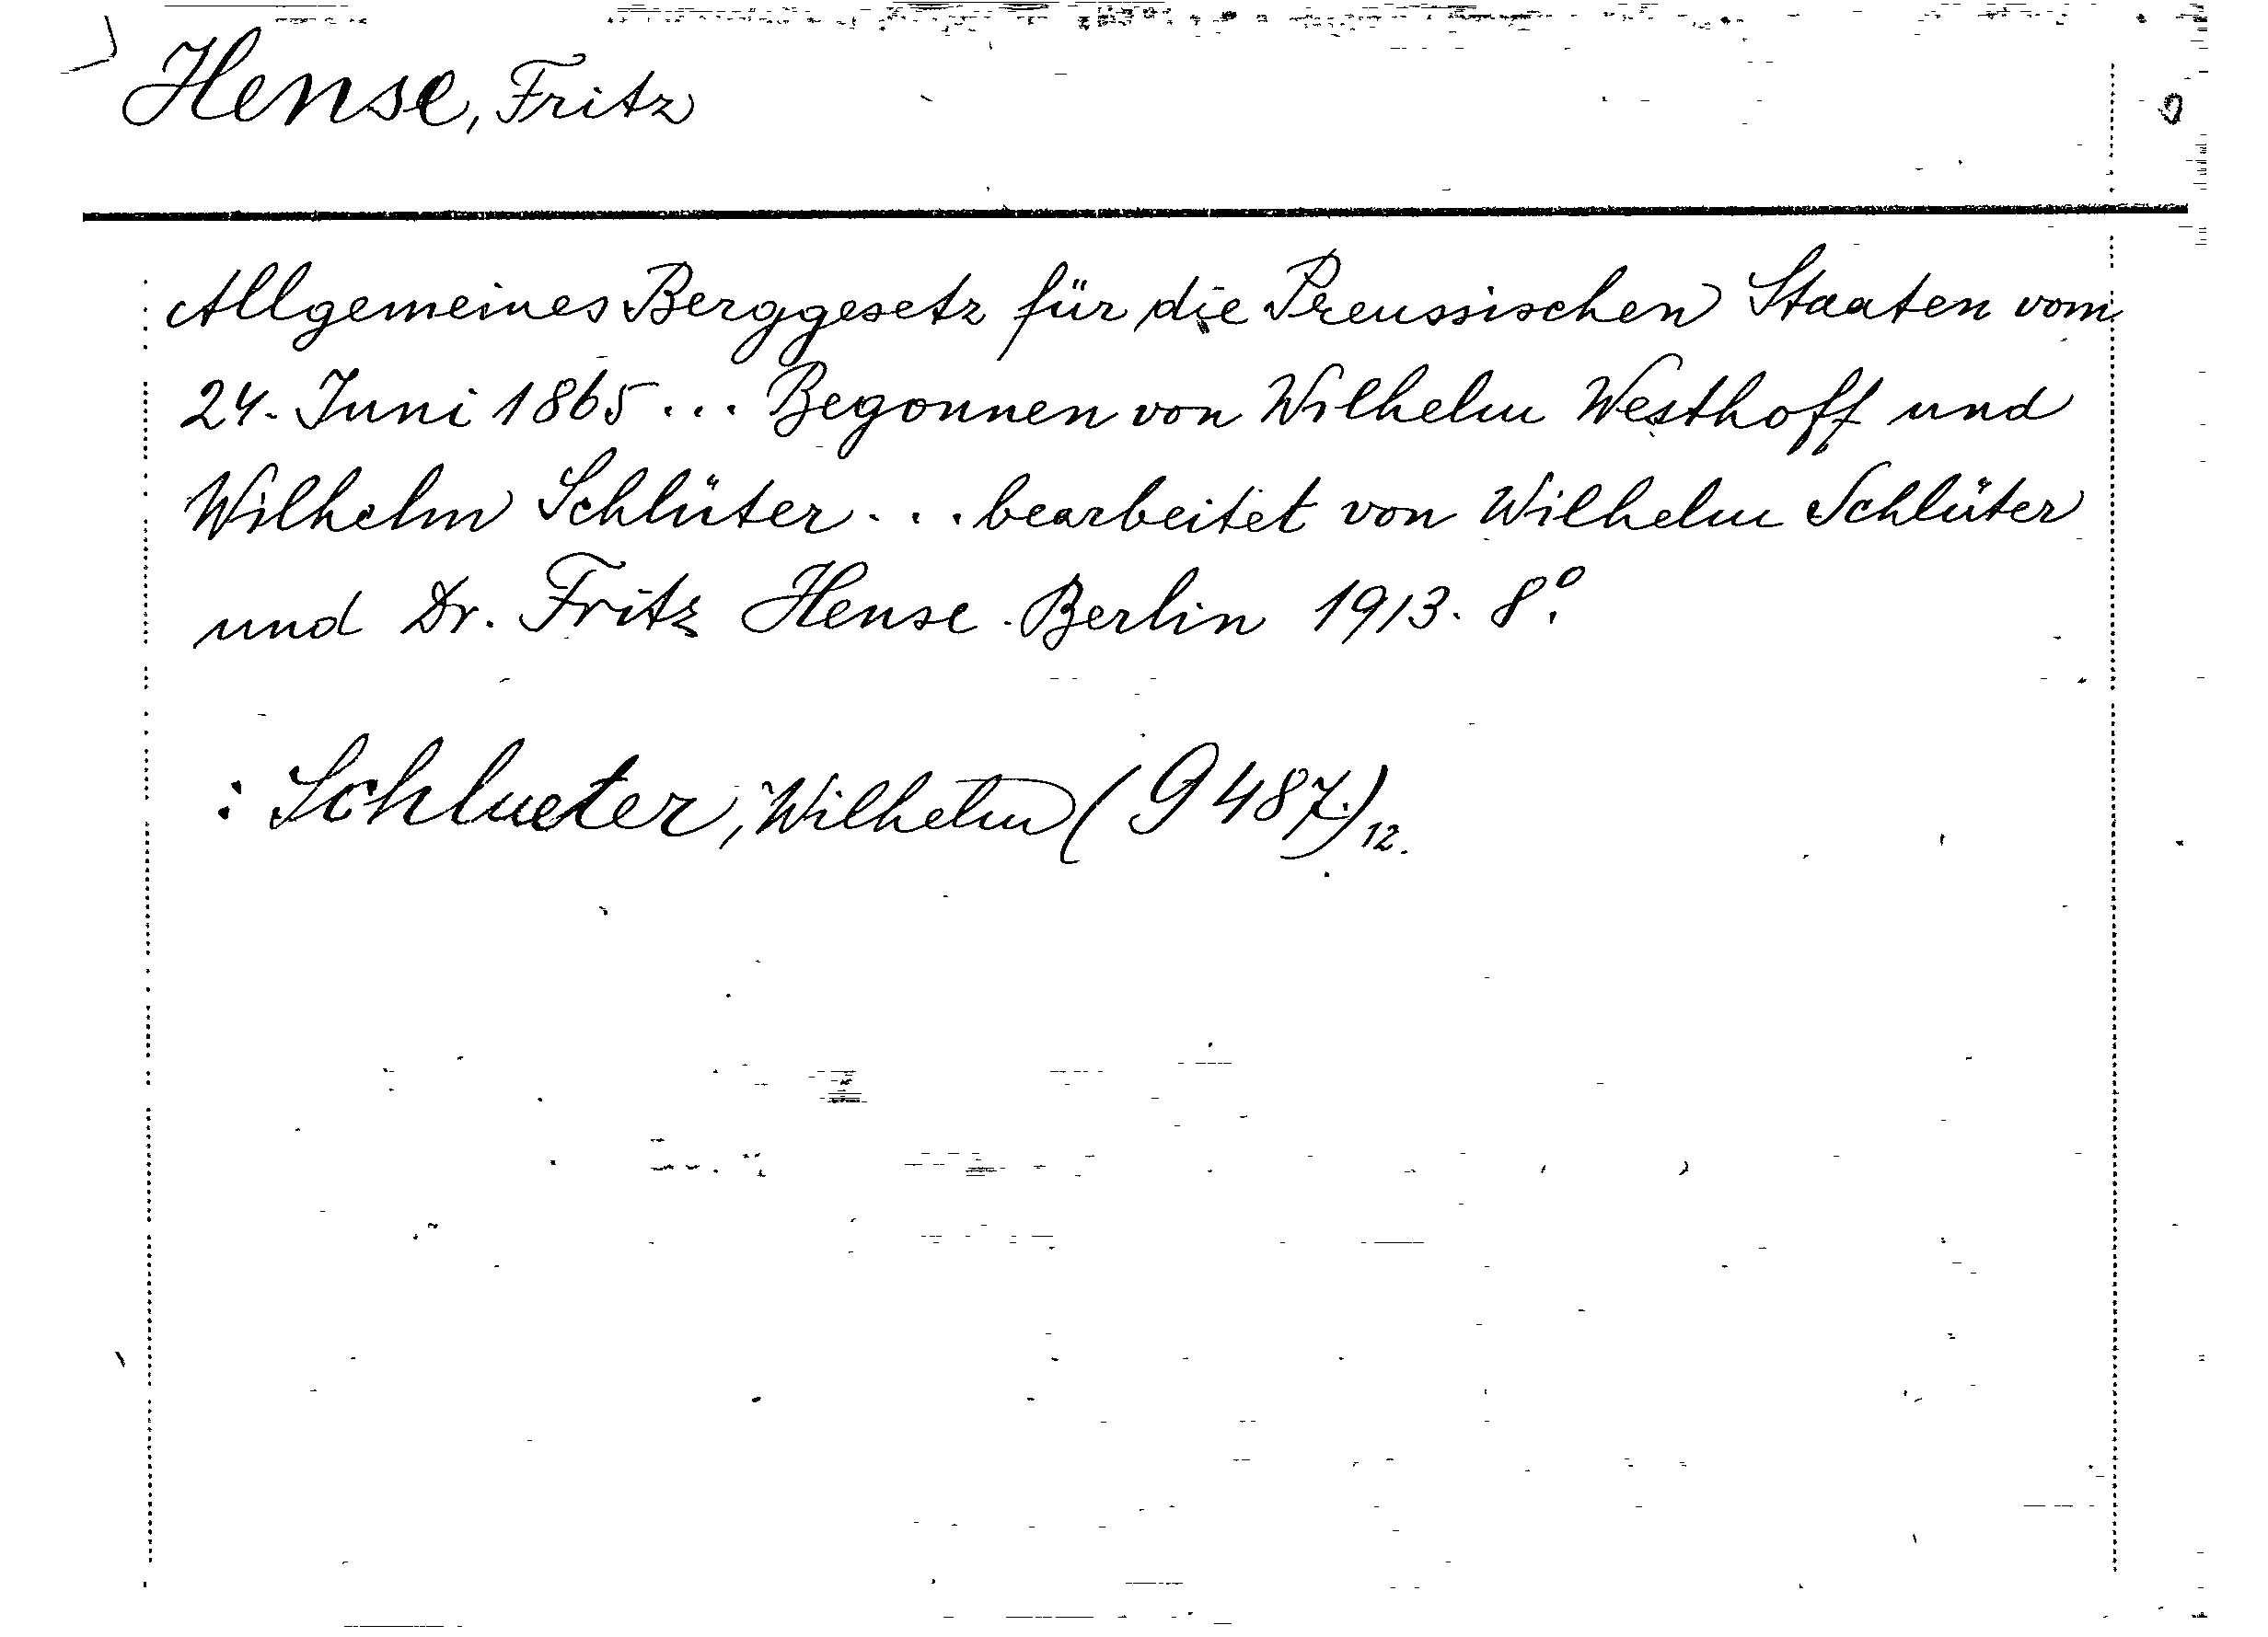 Hense, Fritz
Allgemeines Berggesetz für die Preussischen Staaten vom
24. Juni 1865 ... Begonnen von Wilhelm Westhoff und
Wilhelm Schlüter ... bearbeitet von Wilhelm Schlüter
und Dr. Fritz Hense. Berlin 1913. 8°.
: Schlueter, Wilhelm (9487.) 12.